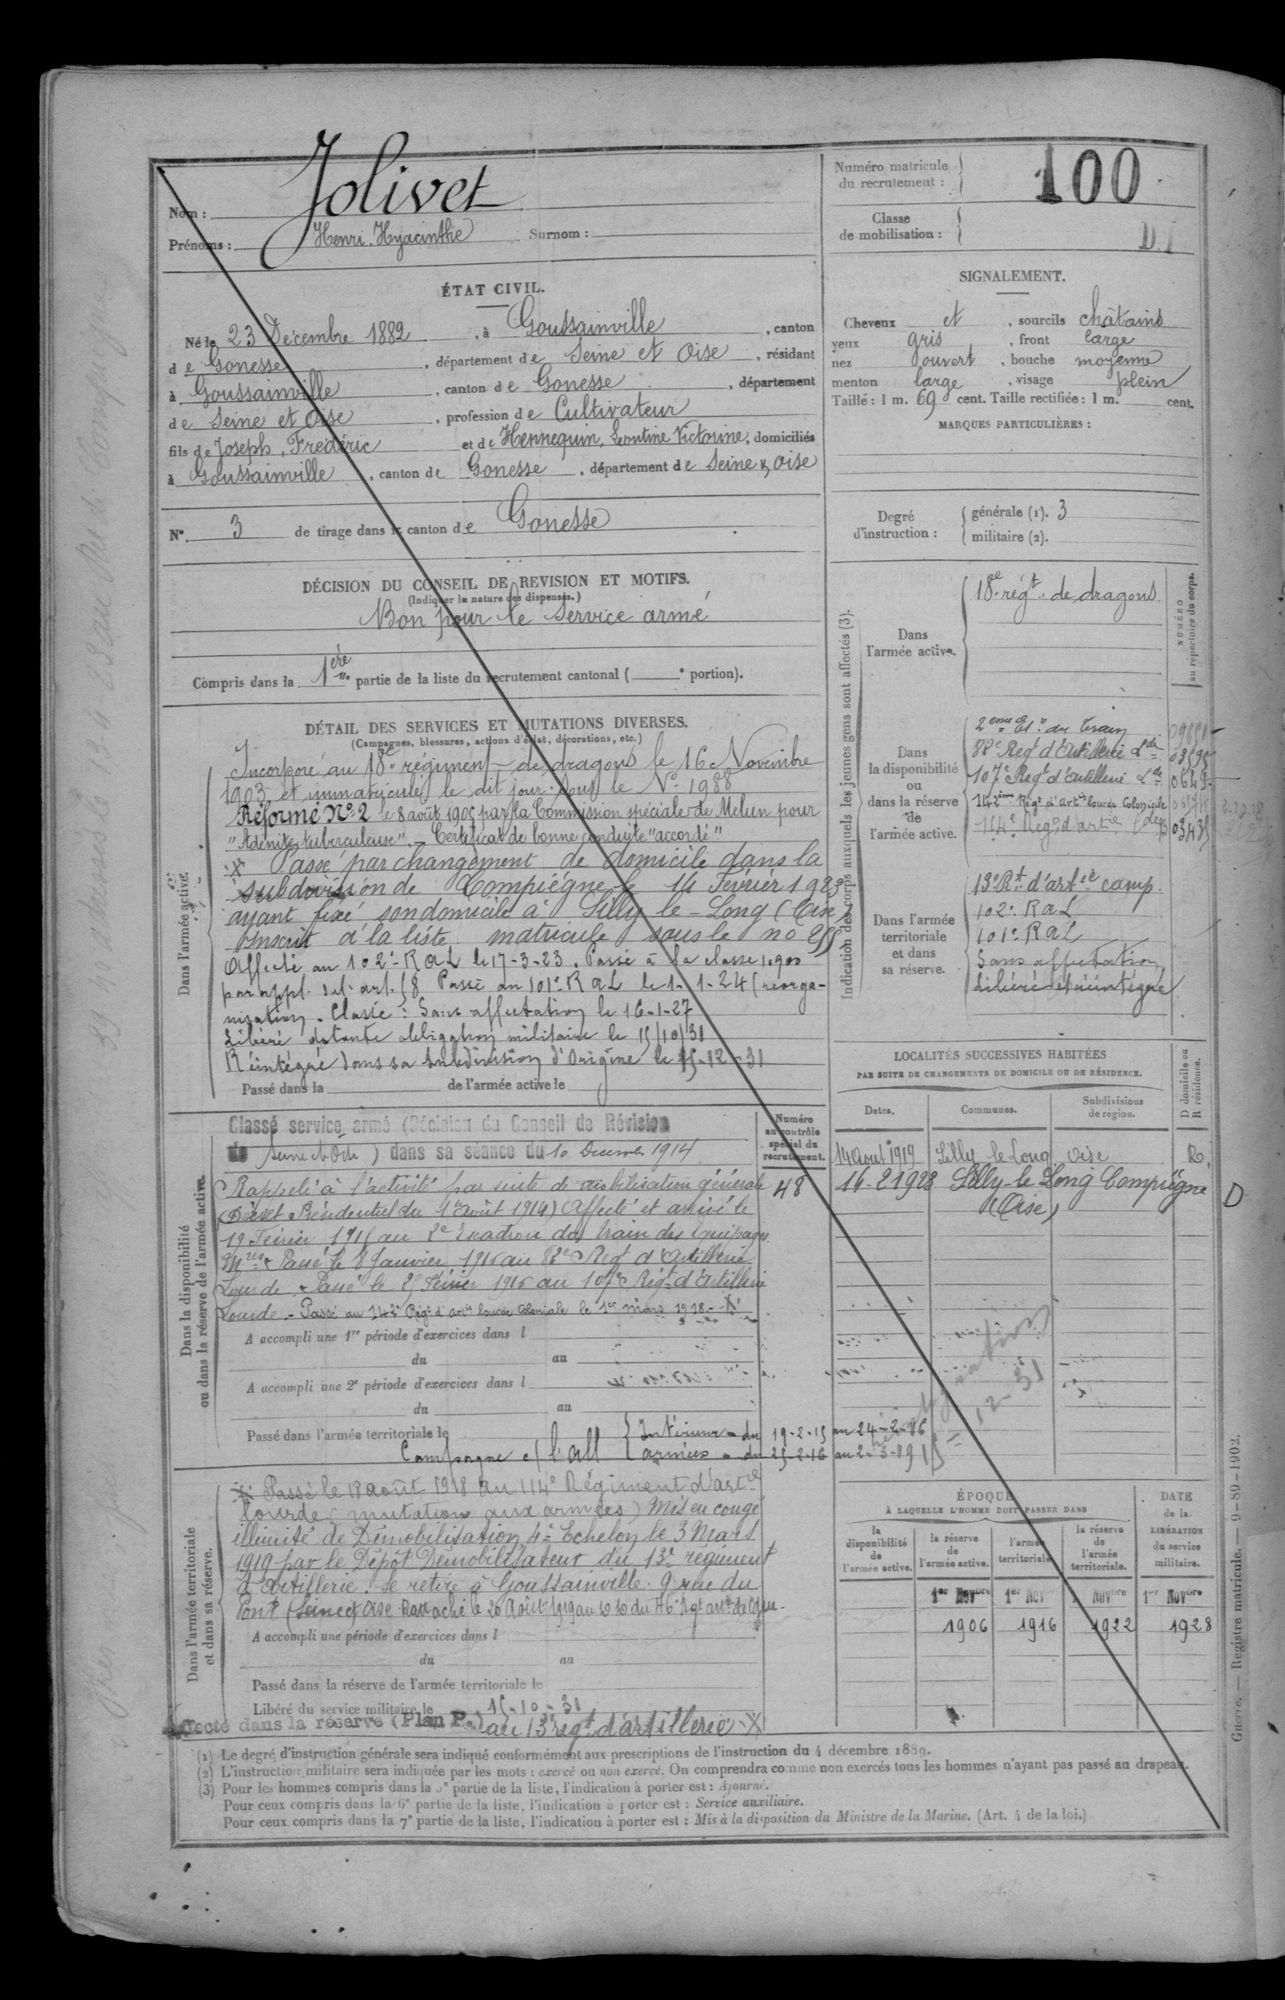 Nom : Jolivet
Prénoms : Henri Hyacinthe Surnom :
Numéro matricule du recrutement : 100
Classe de mobilisation :
ÉTAT CIVIL.
Né le 23 Décembre 1882, à Goussainville, canton
de Gonesse, département de Seine et Oise, résidant
à Goussainville, canton de Gonesse, département
de Seine et Oise, profession de Cultivateur
fils de Joseph, Frédéric et de Hennequin, Léontine Victorine, domiciliés
à Goussainville, canton de Gonesse, département de Seine & Oise
N° 3 de tirage dans le canton de Gonesse
SIGNALEMENT.
Cheveux et, sourcils châtains
yeux gris, front large
nez ouvert, bouche moyenne
menton large, visage plein
Taille : 1 m. 69 cent. Taille rectifiée : 1 m. cent.
MARQUES PARTICULIÈRES :
Degré d'instruction : générale (1). 3
militaire (2).
DÉCISION DU CONSEIL DE REVISION ET MOTIFS.
(Indiquer la nature des dispenses.)
Bon pour le Service armé
Compris dans la 1ère partie de la liste du recrutement cantonal ( e portion).
DÉTAIL DES SERVICES ET MUTATIONS DIVERSES.
(Campagnes, blessures, actions d'éclat, décorations, etc.)
Dans l'armée active.
Incorporé au 18e régiment de dragons le 16 Novembre
1903 et immatriculé le dit jour sous le N° 1988
Réformé N° 2 le 8 août 1905 par la Commission spéciale de Melun pour
"Adénite tuberculeuse". Certificat de bonne conduite "accordé"
X Passé par changement de domicile dans la
subdivision de Compiégne le 14 Février 1923
ayant fixé son domicile à Silly-le-Long (Oise)
Inscrit à la liste matricule sous le no
Affecté au 102e RaL le 17-3-23. Passé à la classe 1900
par appl. de l'art. 58 Passé au 101e RaL le 1-1-24 (réorga-
nisation. Classé : Sans affectation le 16-1-27
Libéré de toute obligation militaire le 15/10/31
Réintégré dans sa subdivision d'Origine le 15-12-31
Passé dans la de l'armée active le
Indication des corps auxquels les jeunes gens sont affectés (3).
NUMÉRO au répertoire du corps.
Dans l'armée active.
18e régt. de dragons
Dans la disponibilité ou dans la réserve de l'armée active.
2eme Et. du train
82e Reg d'Artillerie Lde 03595
107e Regt d'Artillerie Lde
142ème Régt d'artie lourde Coloniale
114e Regt d'artie Lde
Dans l'armée territoriale et dans sa réserve.
13e Rt d'artie camp.
102e RaL
101e RaL
Sans affectation
Libéré et réintégré
Dans la disponibilité ou dans la réserve de l'armée active.
Classé service armé (Décision du Conseil de Révision
de Seine et Oise) dans sa séance du 10 Décembre 1914
Numéro au contrôle spécial du recrutement.
48
Rappelé à l'activité par suite de mobilisation générale
(Décret Présidentiel du 1er Août 1914) Affecté et arrivé le
19 Février 1915 au 2e Escadron du train des Equipages
Mres. Passé le 8 Janvier 1916 au 82e Régt d'Artillerie
Lourde. Passé le 25 Février 1916 au 107e Régt d'Artillerie
Lourde. - Passé au 142e Régt d'artie lourde Coloniale le 1er mars 1918. - X
A accompli une 1re période d'exercices dans l
du au
A accompli une 2e période d'exercices dans l
du au
Passé dans l'armée territoriale le
Campagne c/ l'All { Intérieur - du 19-2-15 au 24-2-16
armées - du 25-2-16 au 2-3-19
LOCALITÉS SUCCESSIVES HABITÉES
PAR SUITE DE CHANGEMENTS DE DOMICILE OU DE RÉSIDENCE.
D domicile ou R résidence.
Dates. Communes. Subdivisions de région.
14 Août 1919 Silly le Long Oise R.
14-2 1923 Silly-le-Long Compiègne D
(Oise)
Dans l'armée territoriale et dans sa réserve.
X Passé le 18 août 1918 au 114e Régiment d'artie
lourde (mutation aux armées) Mis en congé
illimité de Démobilisation 4e Echelon le 3 Mars
1919 par le Dépôt Démobilisateur du 13e régiment
d'Artillerie. Se retire à Goussainville. 9 rue du
Pont (Seine et Oise
A accompli une période d'exercices dans l
du au
Passé dans la réserve de l'armée territoriale le
Libéré du service militaire le 15-10-31
Affecté dans la réserve (Plan P.) au 13e régt d'artillerie X
ÉPOQUE
À LAQUELLE L'HOMME DOIT PASSER DANS
la disponibilité de l'armée active. la réserve de l'armée active. l'armée territoriale. la réserve de l'armée territoriale.
DATE de la LIBÉRATION du service militaire.
1er Novbre 1er Nov Novbre 1er Novbre
1906 1916 1922 1928
(1) Le degré d'instruction générale sera indiqué conformément aux prescriptions de l'instruction du 4 décembre 1889.
(2) L'instruction militaire sera indiquée par les mots : exercé ou non exercé. On comprendra comme non exercés tous les hommes n'ayant pas passé au drapeau.
(3) Pour les hommes compris dans la 5e partie de la liste, l'indication à porter est : Ajourné.
Pour ceux compris dans la 6e partie de la liste, l'indication à porter est : Service auxiliaire.
Pour ceux compris dans la 7e partie de la liste, l'indication à porter est : Mis à la disposition du Ministre de la Marine. (Art. 4 de la loi.)
Guerre. — Registre matricule. — 9-89-1902.